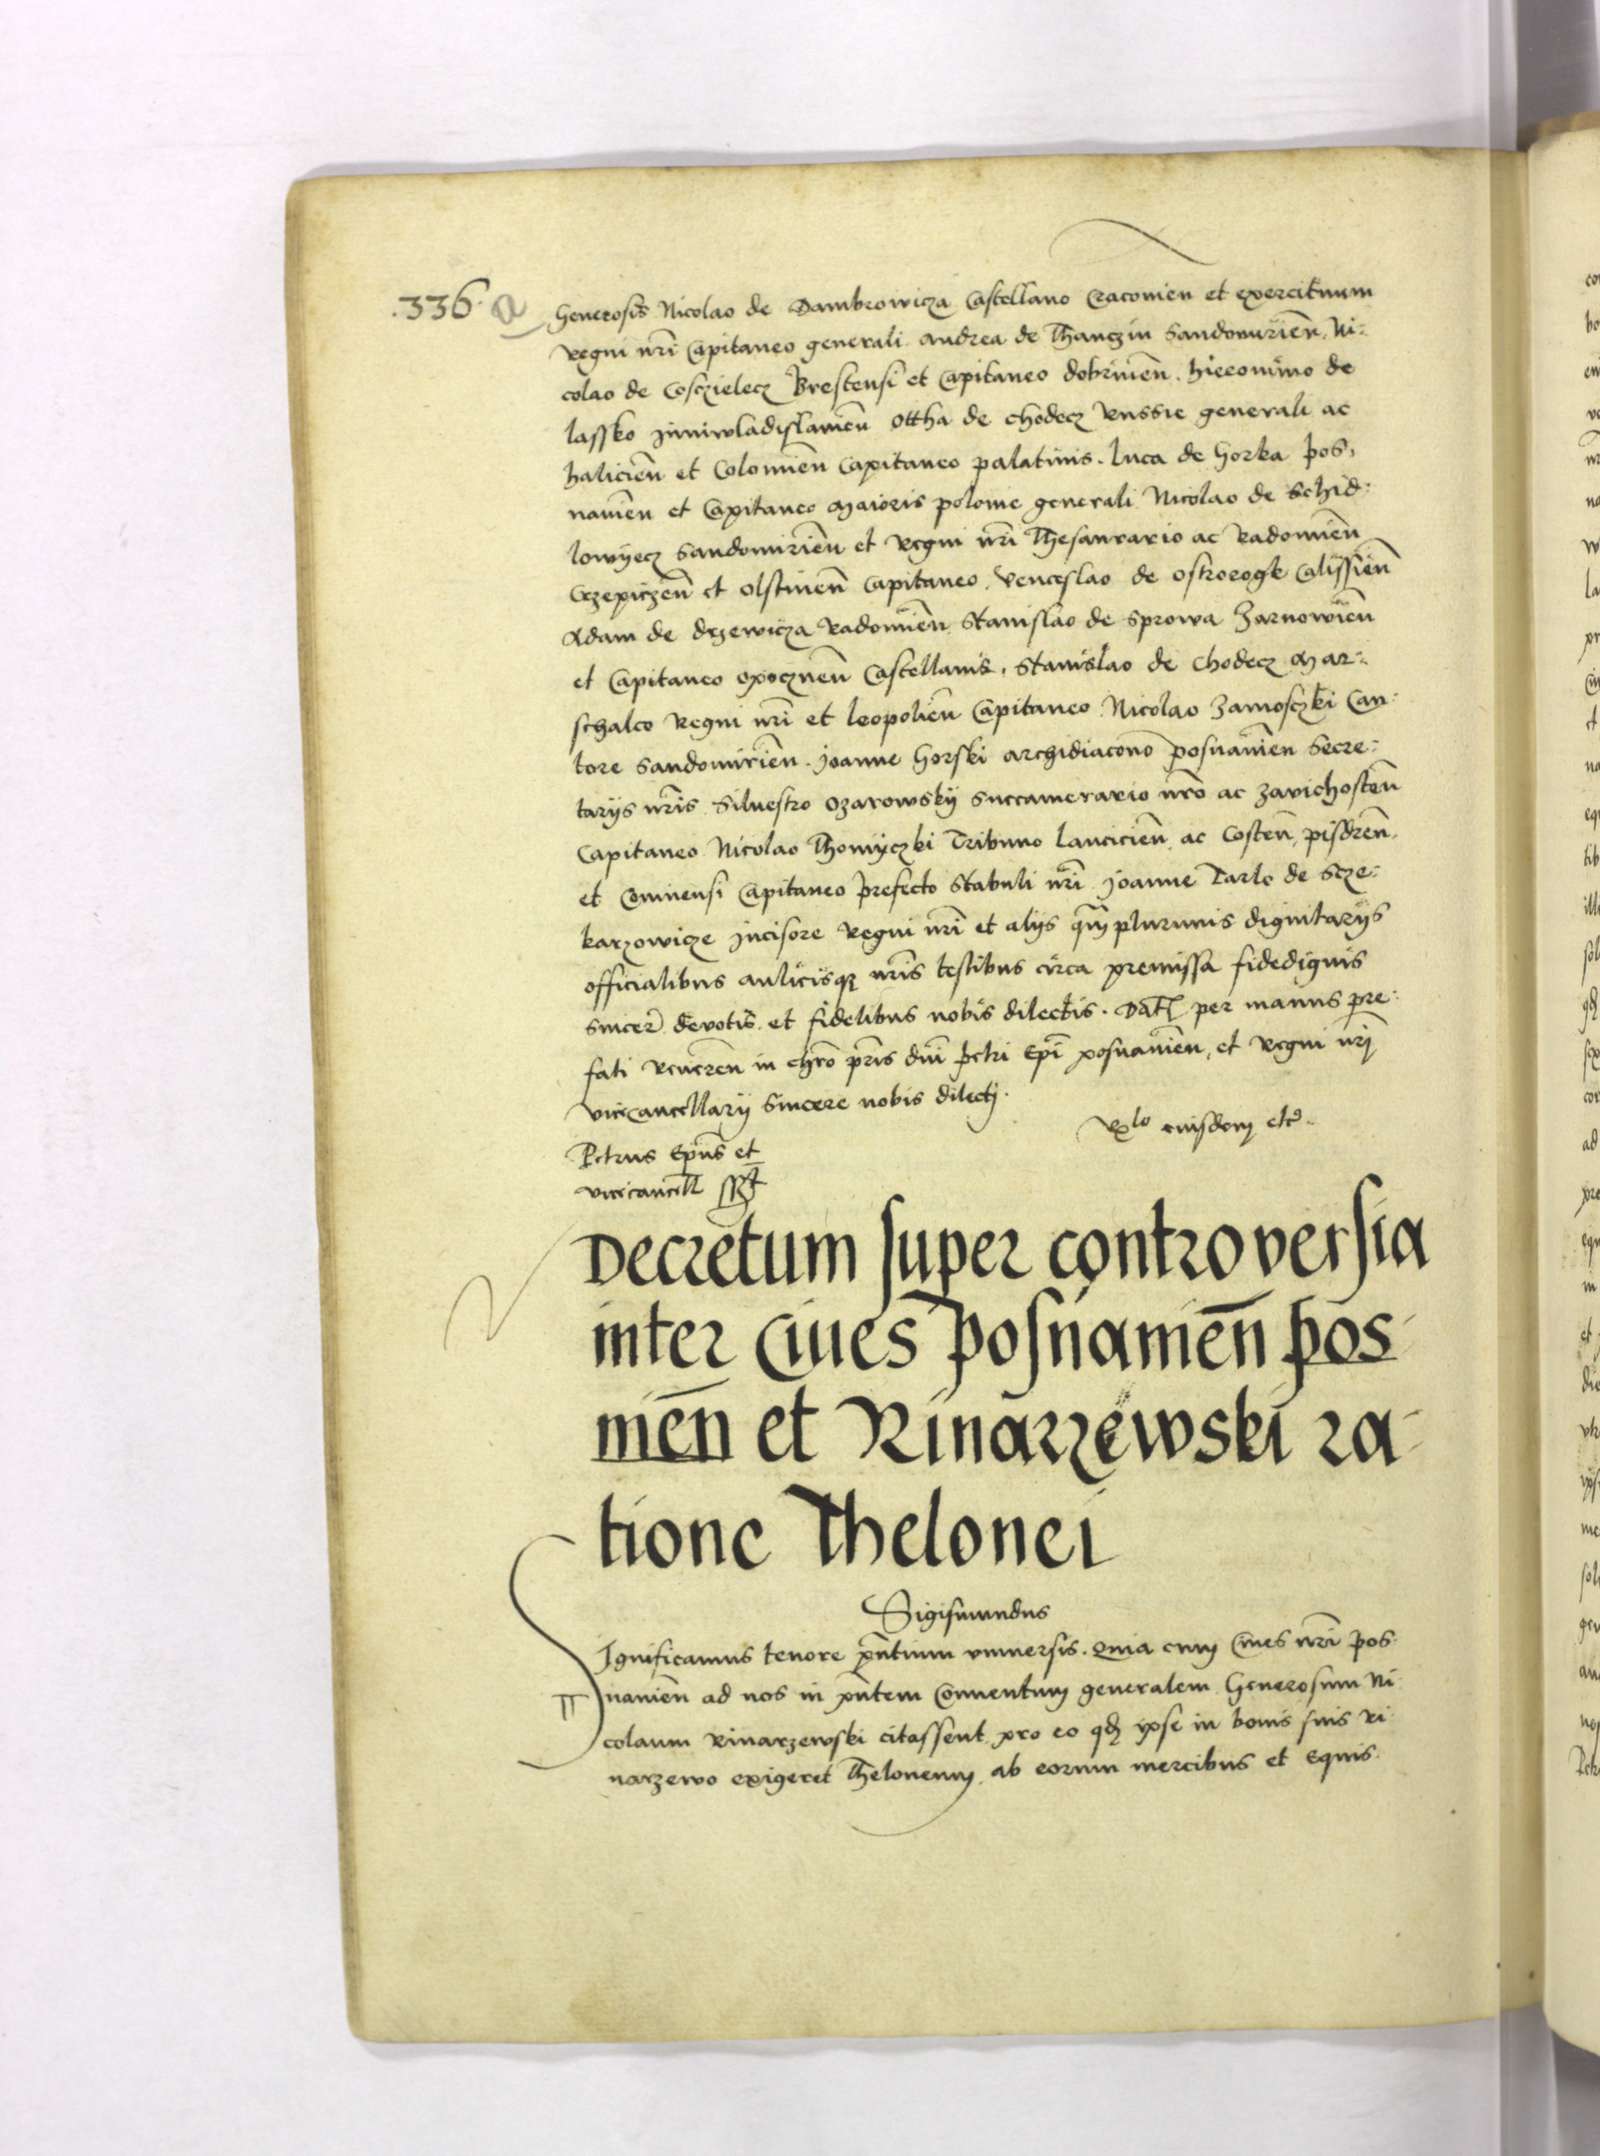 .336. a
Generosis Nicolao de Dambrowicza Castellano Cracovien et exercituum
regni nr̄i Capitaneo generali Andrea de Thanczin Sandomirieñ. Ni-
colao de Cosczielecz Brestensi et Capitaneo dobrinieñ. hieronimo de
lassko Juniwladislavieñ Ottha de Chodecz Russie generali ac
halicieñ et Colomieñ Capitaneo palatinis. luca de Gorka pos,
nanieñ et Capitaneo Maioris polonie generali Nicolao de Schid:
lowyecz Sandomirieñ et Regni nr̄i Thesaurario ac Radomieñ
Crzepiczeñ et olstineñ Capitaneo. Venceslao de ostrorogk Calissieñ
Adam de drzewicza Radomieñ Stanislao de Sprowa Zarnowieñ
et Capitaneo opoczneñ Castellanis. Stanislao de Chodecz Mar-
schalco Regni nr̄i et leopolieñ Capitaneo Nicolao Zamosczki Can-
tore Sandomirieñ. Joanne Gorski archidiacono posnanieñ Secre-
tarijs nr̄is Silvestro Ozarowskÿ Succamerario nr̄o ac Zavichosteñ
Capitaneo Nicolao Thomiczki Tribuno lancicieñ ac Costeñ, pisdreñ
et Coninensi Capitaneo prefecto stabuli nr̄i Joanne Tarlo de Scze-
karzowicze Incisore Regni nr̄i et alijs qm̄ plurimis dignitarijs
officialibus aulicisq nr̄is testibus circa premissa fidedignis
sincer̄ devotis et fidelibus nobis dilectis. Dat̄ per manus pre-
fati Revereñ in chr̄o pr̄is dn̄i petri Ep̄i posnanieñ, et Regni nr̄i
vicecancellarij sincere nobis dilecti.
Rlo eiusdem etc̄
Petrus Ep̄us et
vicecancell sszt
Decretum super controversia
inter Cives Posnanieñ pos
nieñ et Rinarzewski ra-
tione Thelonei
Sigismundus
Significamus tenore pn̄tium universis. Quia cum Cives nr̄i pos-
nanieñ ad nos in pn̄tem Conventum generalem Generosum Ni-
colaum Rinarzewski citassent pro eo qd ipse in bonis suis Ri-
narzewo exigeret Theloneum ab eorum mercibus et Equis